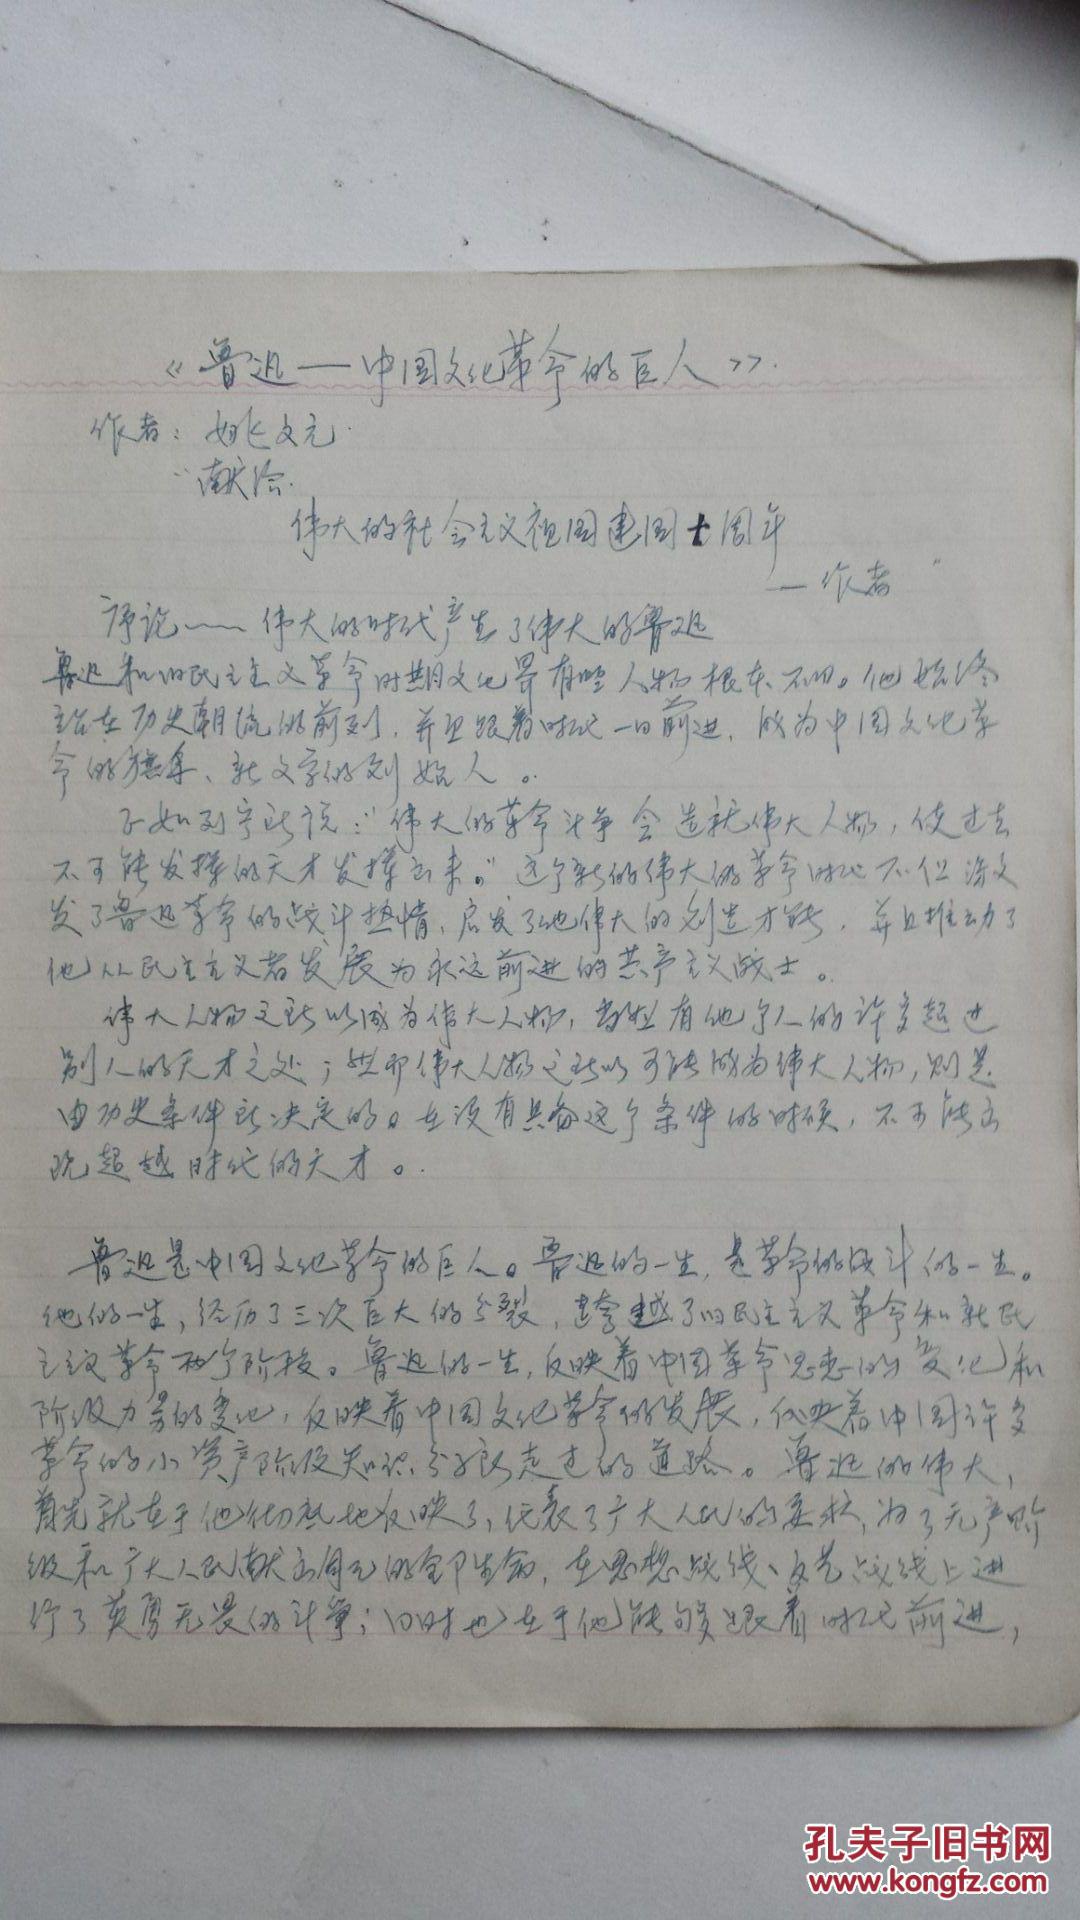 《鲁迅—中国文化革命的巨人》.
作者：姚文元.
“献给.
伟大的社会主义祖国建国十周年
—作者”
序论——伟大的时代产生了伟大的鲁迅
鲁迅和旧民主主义革命时期文化界有些人物根本不同。他始终
站在历史潮流的前列，并且跟着时代一同前进，成为中国文化革
命的旗手、新文学的创始人。
正如列宁所说：“伟大的革命斗争会造就伟大人物，使过去
不可能发挥的天才发挥出来。”这个新的伟大的革命时代不但激
发了鲁迅革命的战斗热情，启发了他伟大的创造才能，并且推动了
他从民主主义者发展为永远前进的共产主义战士。
伟大人物之所以成为伟大人物，当然有他个人的许多超过
别人的天才之处；然而伟大人物之所以可能成为伟大人物，则是
由历史条件所决定的。在没有具备这个条件的时候，不可能出
现超越时代的天才。
鲁迅是中国文化革命的巨人。鲁迅的一生，是革命的战斗的一生。
他的一生，经历了三次巨大的分裂，跨越了旧民主主义革命和新民
主义革命两个阶段。鲁迅的一生，反映着中国革命思想的变化和
阶级力量的变化，反映着中国文化革命的发展，反映着中国许多
革命的小资产阶级知识分子所走过的道路。鲁迅的伟大，
首先就在于他彻底地反映了，代表了广大人民的要求，为了无产阶
级和广大人民献出自己的全部生命，在思想战线、文艺战线上进
行了英勇无畏的斗争；同时也在于他能够跟着时代前进，
孔夫子旧书网
www.kongfz.com